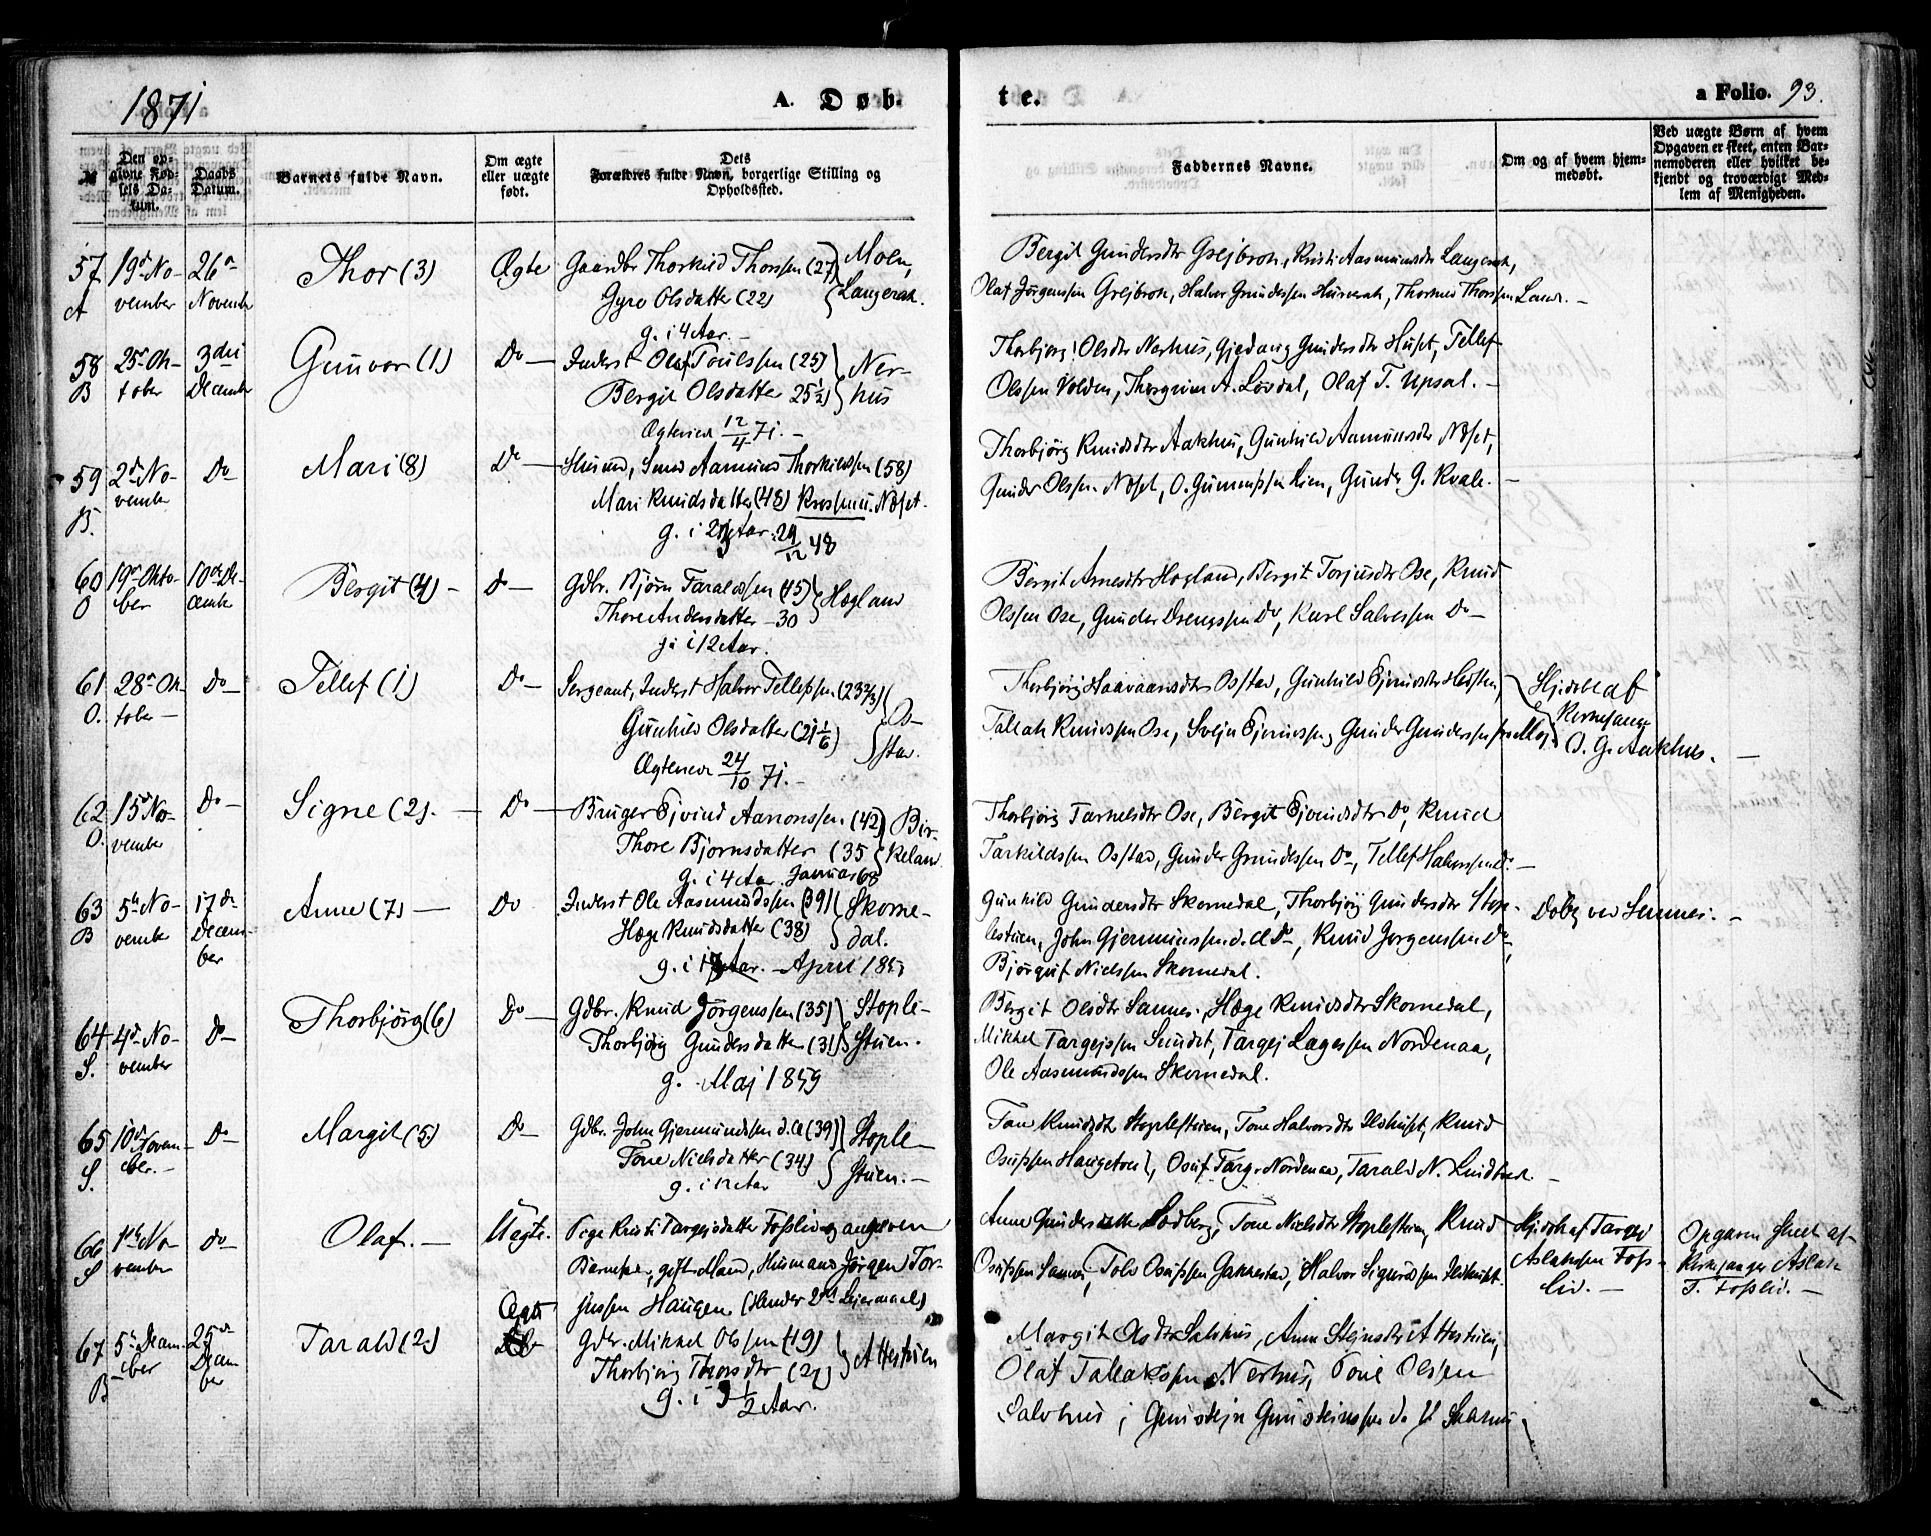 1871
A. Døb-
te.
a Folio. 93.
№
Den op-
givne Fød-
sels Da-
tum.
Daabs
Datum.
Barnets fulde Navn.
Om ægte
eller uægte
født.
Dets
Forældres fulde Navn, borgerlige Stilling og
Opholdssted.
Faddernes Navne.
Om og af hvem hjem-
medøbt.
Ved uægte Børn af hvem
Opgaven er skeet, enten Bar-
nemoderen eller hvilket be-
kjendt og troværdigt Med-
lem af Menigheden.
57 A
19d No-
vember
26n
Novembr
Thor (3)
Ægte
Gaardbr Thorkild Thorssen (27)
Gyro Olsdatter (22)
g. i 4 Aar.
Moen,
Langerak.
Bergit Gundersdtr Grejbrok, Kristi Aasmundsdtr Langerak,
Olaf Jørgenssen Grejbrok, Halvor Gunderssen Huserak, Thorkild Thorssen
58 B
25 Ok-
tober
3die
December
Gunvor (1)
Do
Inderst Olaf Toulssen (25)
Bergit Olsdatter 25½)
Ner-
hus
Ægteviede 12/4 71.
Thorbjørg Olsdtr Nerhus, Gjedang Gundersdtr Huset, Tellef
Olssen Volden, Thorgrim A. Løvdal, Olaf T. Upsal.
59 B.
2d No-
vember
Do
Mari (8)
Do
Husmd, Smed Aamund Thorkildssen (58)
Mari Knudsdatter (48) Næset.
g. i Aar. 29/12 48
Thorbjørg Knudsdtr Aakhus, Gunhild Aamundsdtr Næset,
Gunder Olssen Næset, O. Lien, Gunder G. Kvale.
60 O
19n Okto-
ber
10de De-
cember
Bergit (4)
Do
Gdbr. Bjørn Taraldssen (45)
Thore Andersdatter 30
Høgland
g. i 12 Aar.
Bergit Arnesdtr Høgland, Bergit Torjusdtr Ose, Knud
Olssen Ose, Gunder Drengssen Do, Karl Salvessen Do
61 O.
28n Ok-
tober
Do
Tellef (1)
Do
Sergeant, Inderst Halvor Tellefssen (23⅔)
Gunhild Olsdatter (21⅙)
Os-
stad.
Ægteviede 24/10 71.
Thorbjørg Haavaarsdtr Osstad, Gunhild Ejvindsdtr
Tallak Knudssen Ose, Svejn Ejvindssen, Gunder Gunderssen
Hjdøbt af
Kirkesanger
O. G. Aakhus.
62 O.
15d No-
vember
Do
Signe (2).
Do
Bruger Ejvind Aanonssen (42)
Thore Bjørnsdatter (35
Bir-
keland
g. i 4 Aar. Januar 68
Thorbjørg Tarkelsdtr Ose, Bergit Ejvindsdtr Do, Knud
Tarkildssen Osstad, Gunder Gunderssen Do, Tellef Halvorssen Do.
63 B
5te No-
vembr
17de
Decem-
ber
Anne (7)
Do
Inderst Ole Aasmundssen (39)
Hæge Knudsdatter (38)
Skome-
dal.
g. i Aar. April 18
Gunhild Gundersdtr Skomedal, Thorbjørg Gundersdtr Stop-
lestuen, John Gjermundssen d. Æ Do, Knud Jørgenssen Do,
Bjørgulf Nielssen Skomedal.
Døbt ved Sannes.
64 S.
4d No-
vember
Do
Thorbjørg (6)
Do
Gdbr. Knud Jørgenssen (35)
Thorbjørg Gundersdatter (31)
Stople-
stuen.
g. Maj 1859
Bergit Olsdtr Sannes, Hæge Knudsdtr Skomedal,
Mikkel Targejssen Sundet, Targej Lagessen Nordenaa,
Ole Aasmundssen Skomedal.
65 S.
10d Novem-
ber.
Do
Margit (5)
Do
Gdbr. John Gjermundssen d. Æ (39)
Tone Nielsdatter (34)
Stople-
stuen.
g. i 12 Aar
Tone Knudsdtr Stoplestuen, Tone Halvorsdtr, Knud
Osufssen Haugetvej, Osuf Targ. Nordenaa, Tarald N.
66 S
No-
vember
Do
Olaf.
Uægte.
Pige Kristi Targejsdatter Fosslie og angiven
Barnefar, gift Mand, Husmand Jørgen Tor-
jussen Haugen. (Hendes 2det Lejermaal)
Anne Gundersdatter, Tone Nielsdtr Stoplestuen, Knud
Osufssen Sannes, Tolv Osufssen, Halvor Sigurdssen
Hjdøbt af Targej
Aslakssen Foss-
lid.
Opgaven skeet af
Kirkesanger Aslak
T. Fosslid.
67 B
5te Decem-
ber
25de
Decem
ber
Tarald (2)
Ægte
Gdbr. Mikkel Olssen (49)
Thorbjørg Thorsdtr (27)
g. i ½ Aar.
Margit Olsdtr Salvhus, Anne Stejnsdtr,
Olaf Tallakssen Nerhus, Tone Olssen
Salvhus, Gunstejn Gunsteinssen d.